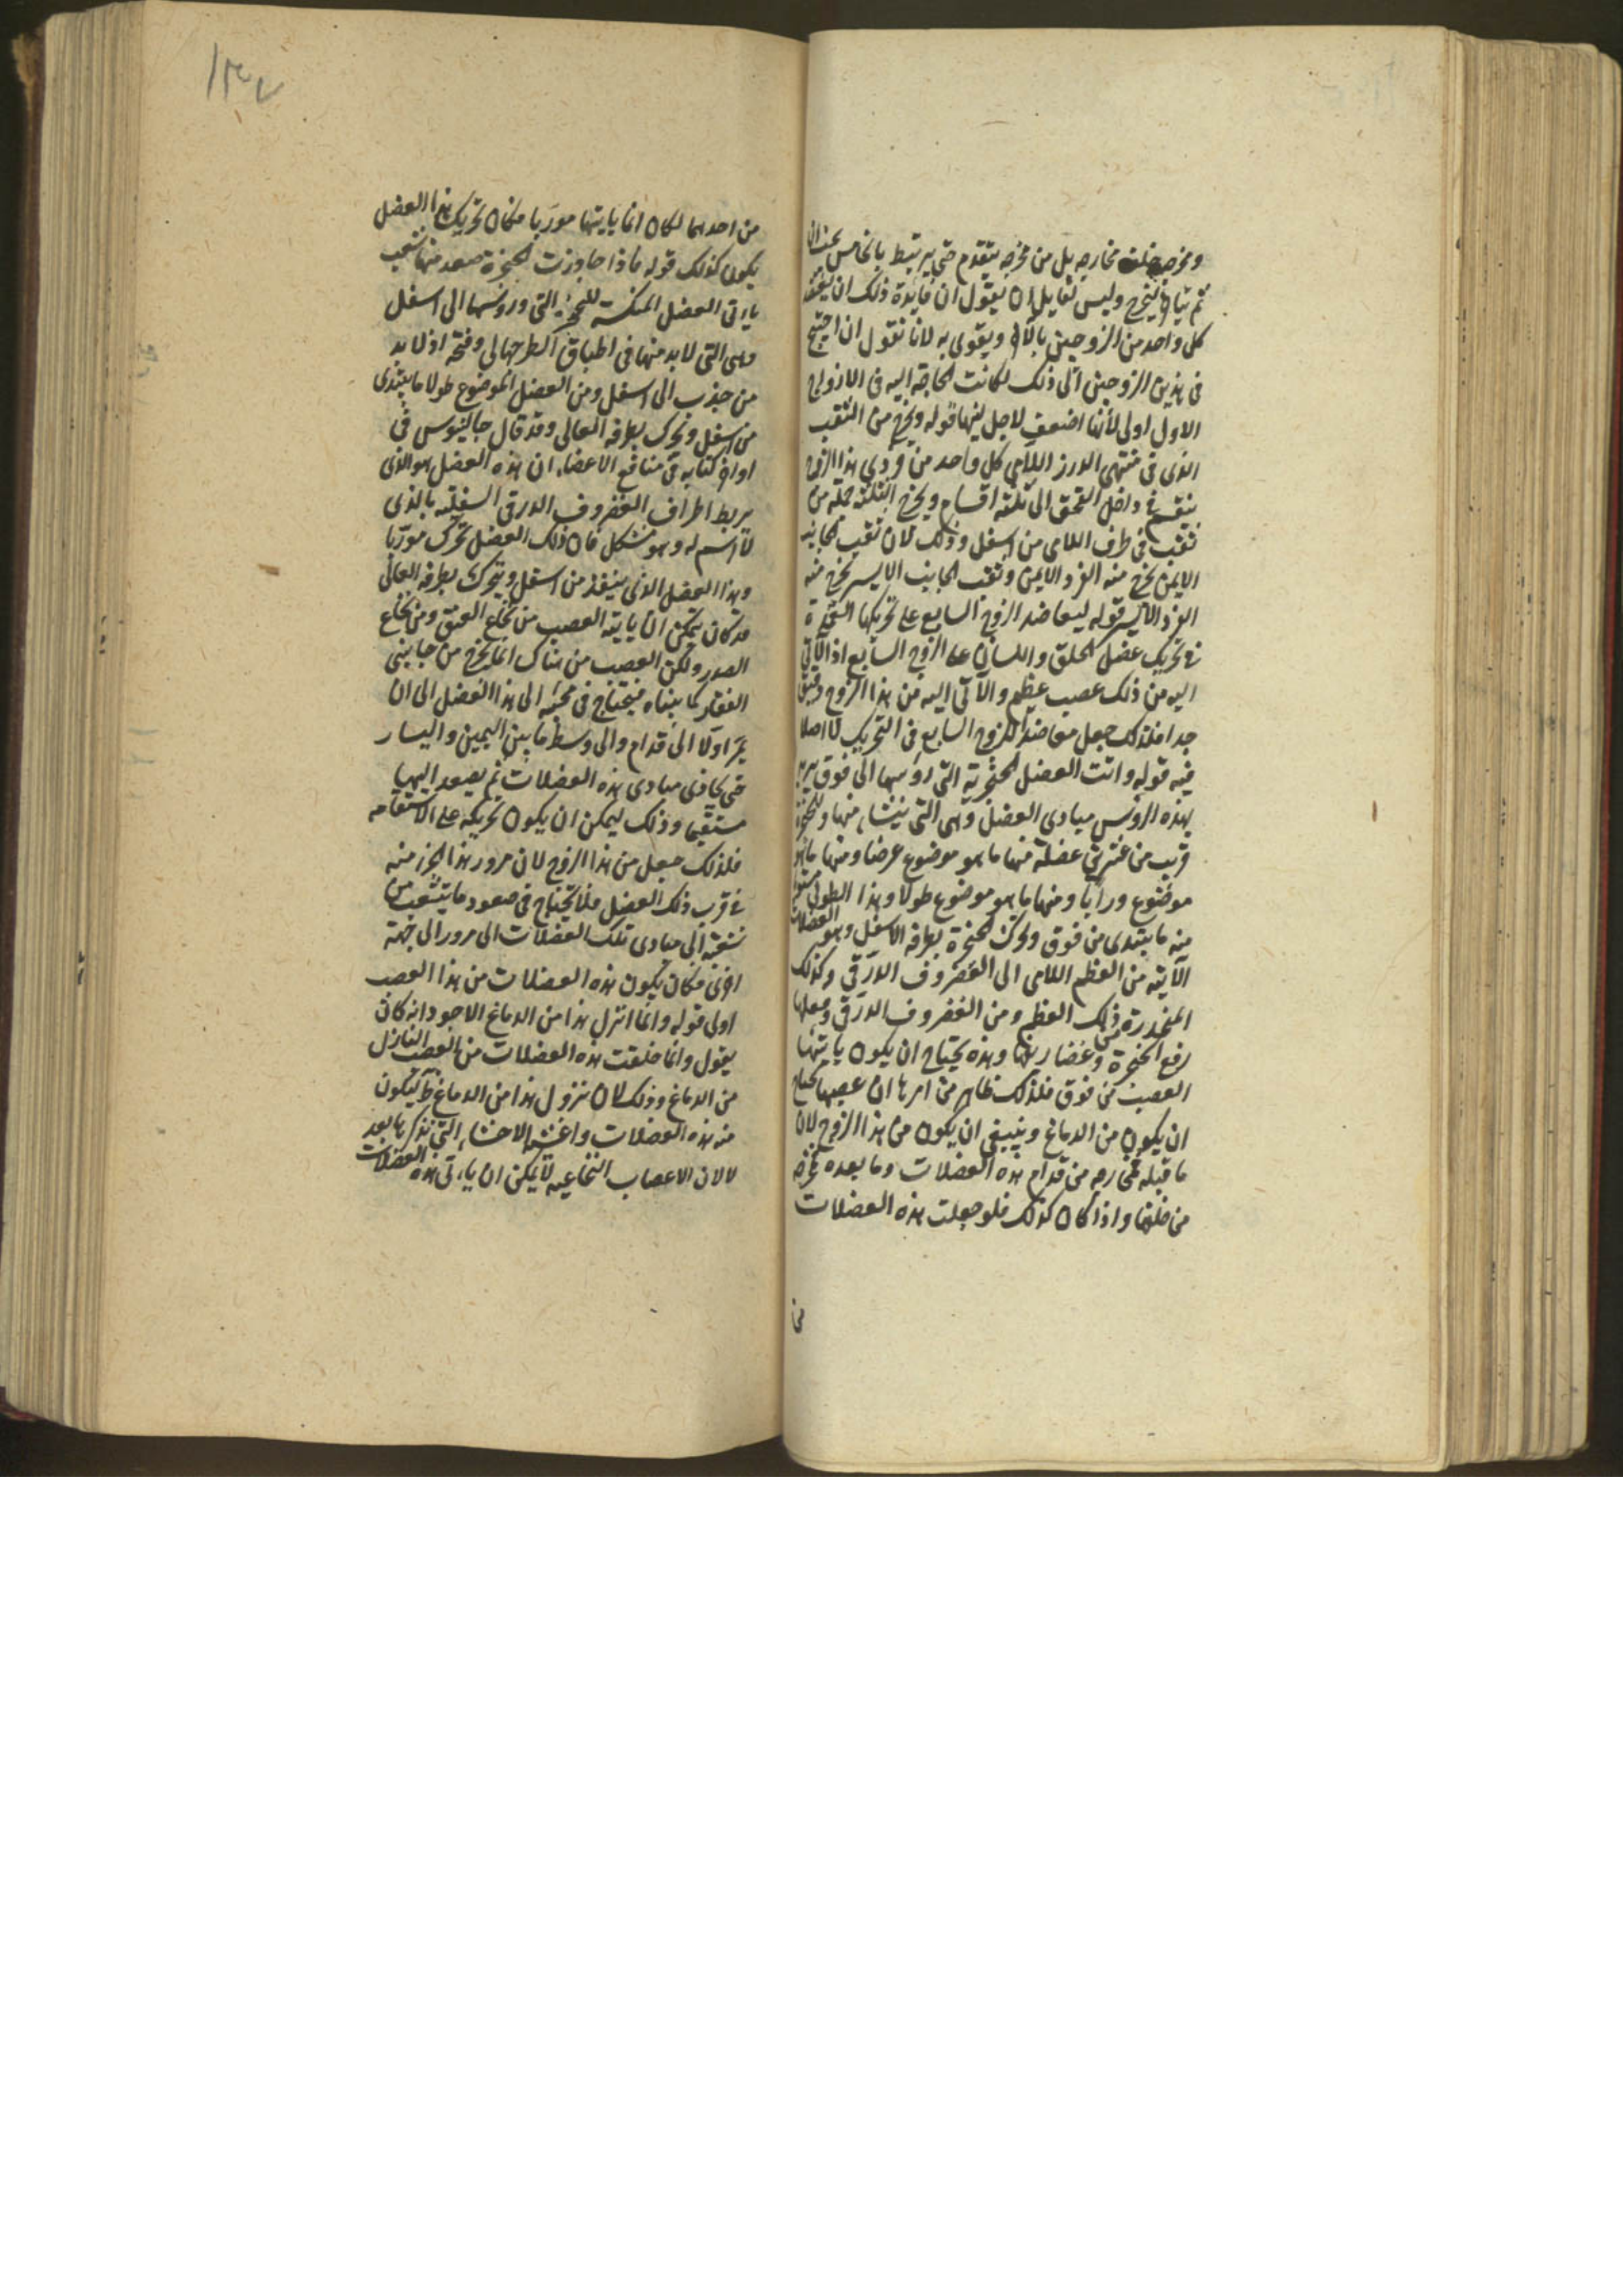 ومخرجه خلف مخارجه بل من مخرجه يتقدم حتى يرتبط بالخامس
ثم يتاخر ليخرج وليس لقايل ان يقول ان فايدة ذلك ان
كل واحد من الزوجين بالآخر ويقوى به لانا نقول ان احتيج
فى هذين الزوجين الى ذلك لكانت الحاجة اليه فى الازواج
الاول اولى لانها اضعف لاجل لينها قوله ويخرج من الثقب
الذى فى منتهى الدرز اللامى كل واحد من فردى هذا الزوج
ينقسم فى داخل القحف الى ثلثة اقسام ويخرج الثلثة جملة من
ثقب فى طرف اللامى من اسفل وذلك لان ثقب الجانب
الايمن يخرج منه الفرد الايمن وثقب الجانب الايسر يخرج منه
الفرد الايسر قوله ليعاضد الزوج السابع على تحريكها
فى تحريك عضل الحلق واللسان على الزوج السابع اذ الآتى
اليه من ذلك عصب عظيم والآتى اليه من هذا الزوج دقيق
جدا فلذلك جعل معاضدا للزوج السابع فى التحريك لا اصلا
فيه قوله واتت العضل الحنجرية التى رؤسها الى فوق يريد
بهذه الرؤس مبادى العضل وهى التى ينشاء منها وللحنجرة
قريب من عشرين عضلة منها ما هو موضوع عرضا ومنها ما هو
موضوع ورابا ومنها ما هو موضوع طولا وهذا الطولى
منه ما يبتدى من فوق ويحرك الحنجرة بطرفه الاسفل وهو العضلات
الآتية من العظم اللامى الى الغضروف الدرقى وكذلك
المنحدرة من ذلك العظم ومن الغضروف الدرقى وفعلها
رفع الحنجرة وغضاريفها وهذه يحتاج ان يكون ياتيها
العصب من فوق فلذلك ظاهر من امرها ان عصبها يحتاج
ان يكون من الدماغ وينبغى ان يكون من هذا الزوج لان
ما قبله مخارجه من قدام هذه العضلات وما بعده مخرجه
من خلفها واذا كان كذلك فلو جعلت هذه العضلات
من
١٣٧
من احدهما لكان انما ياتيها موربا فكان تحريك هذا العضل
يكون كذلك قوله فاذا جاوزت الحنجرة صعد منها شعب
ياتى العضل المنكسة للحنجرة التى رؤسها الى اسفل
وهى التى لا بد منها فى اطباق الطرجهالى وفتحه اذ لا بد
من جذب الى اسفل ومن العضل الموضوع طولا ما يبتدى
من اسفل ويحرك بطرفه العالى وقد قال جالينوس فى
اواخر كتابه فى منافع الاعضاء ان هذه العضل هو الذى
يربط اطراف الغضروف الدرقى السفلية بالذى
لا اسم له وهو مشكل فان ذلك العضل تحرك موربا
وهذا العضل الذى ينفذ من اسفل ويتحرك بطرفه العالى
قد كان يمكن ان ياتيه العصب من نخاع العنق ومن نخاع
الصدر ولكن العصب من هناك انما يخرج من جانبى
الفقار كما بيناه فيحتاج فى مجيئه الى هذا العضل الى ان
يمر اولا الى قدام والى وسط ما بين اليمين واليسار
حتى يحاذى مبادى هذه العضلات ثم يصعد اليها
مستقيما وذلك ليمكن ان يكون تحريكه على الاستقامه
فلذلك جعل من هذا الزوج لان مرور هذا الجزء منه
فى قرب ذلك العضل فلا يحتاج فى صعود ما يتشعب من
شعبه الى مبادى تلك العضلات الى مرور الى جهة
اخرى فكان يكون هذه العضلات من هذا العصب
اولى قوله وانما انزل هذا من الدماغ الاجود انه كان
يقول وانما خلقت هذه العضلات من العصب النازل
من الدماغ وذلك لان نزول هذا من الدماغ ليكون
منه هذه العضلات واغشية الاحشاء التى نذكرها بعد
لا لان الاعصاب النخاعيه لا يمكن ان ياتى هذه العضلات